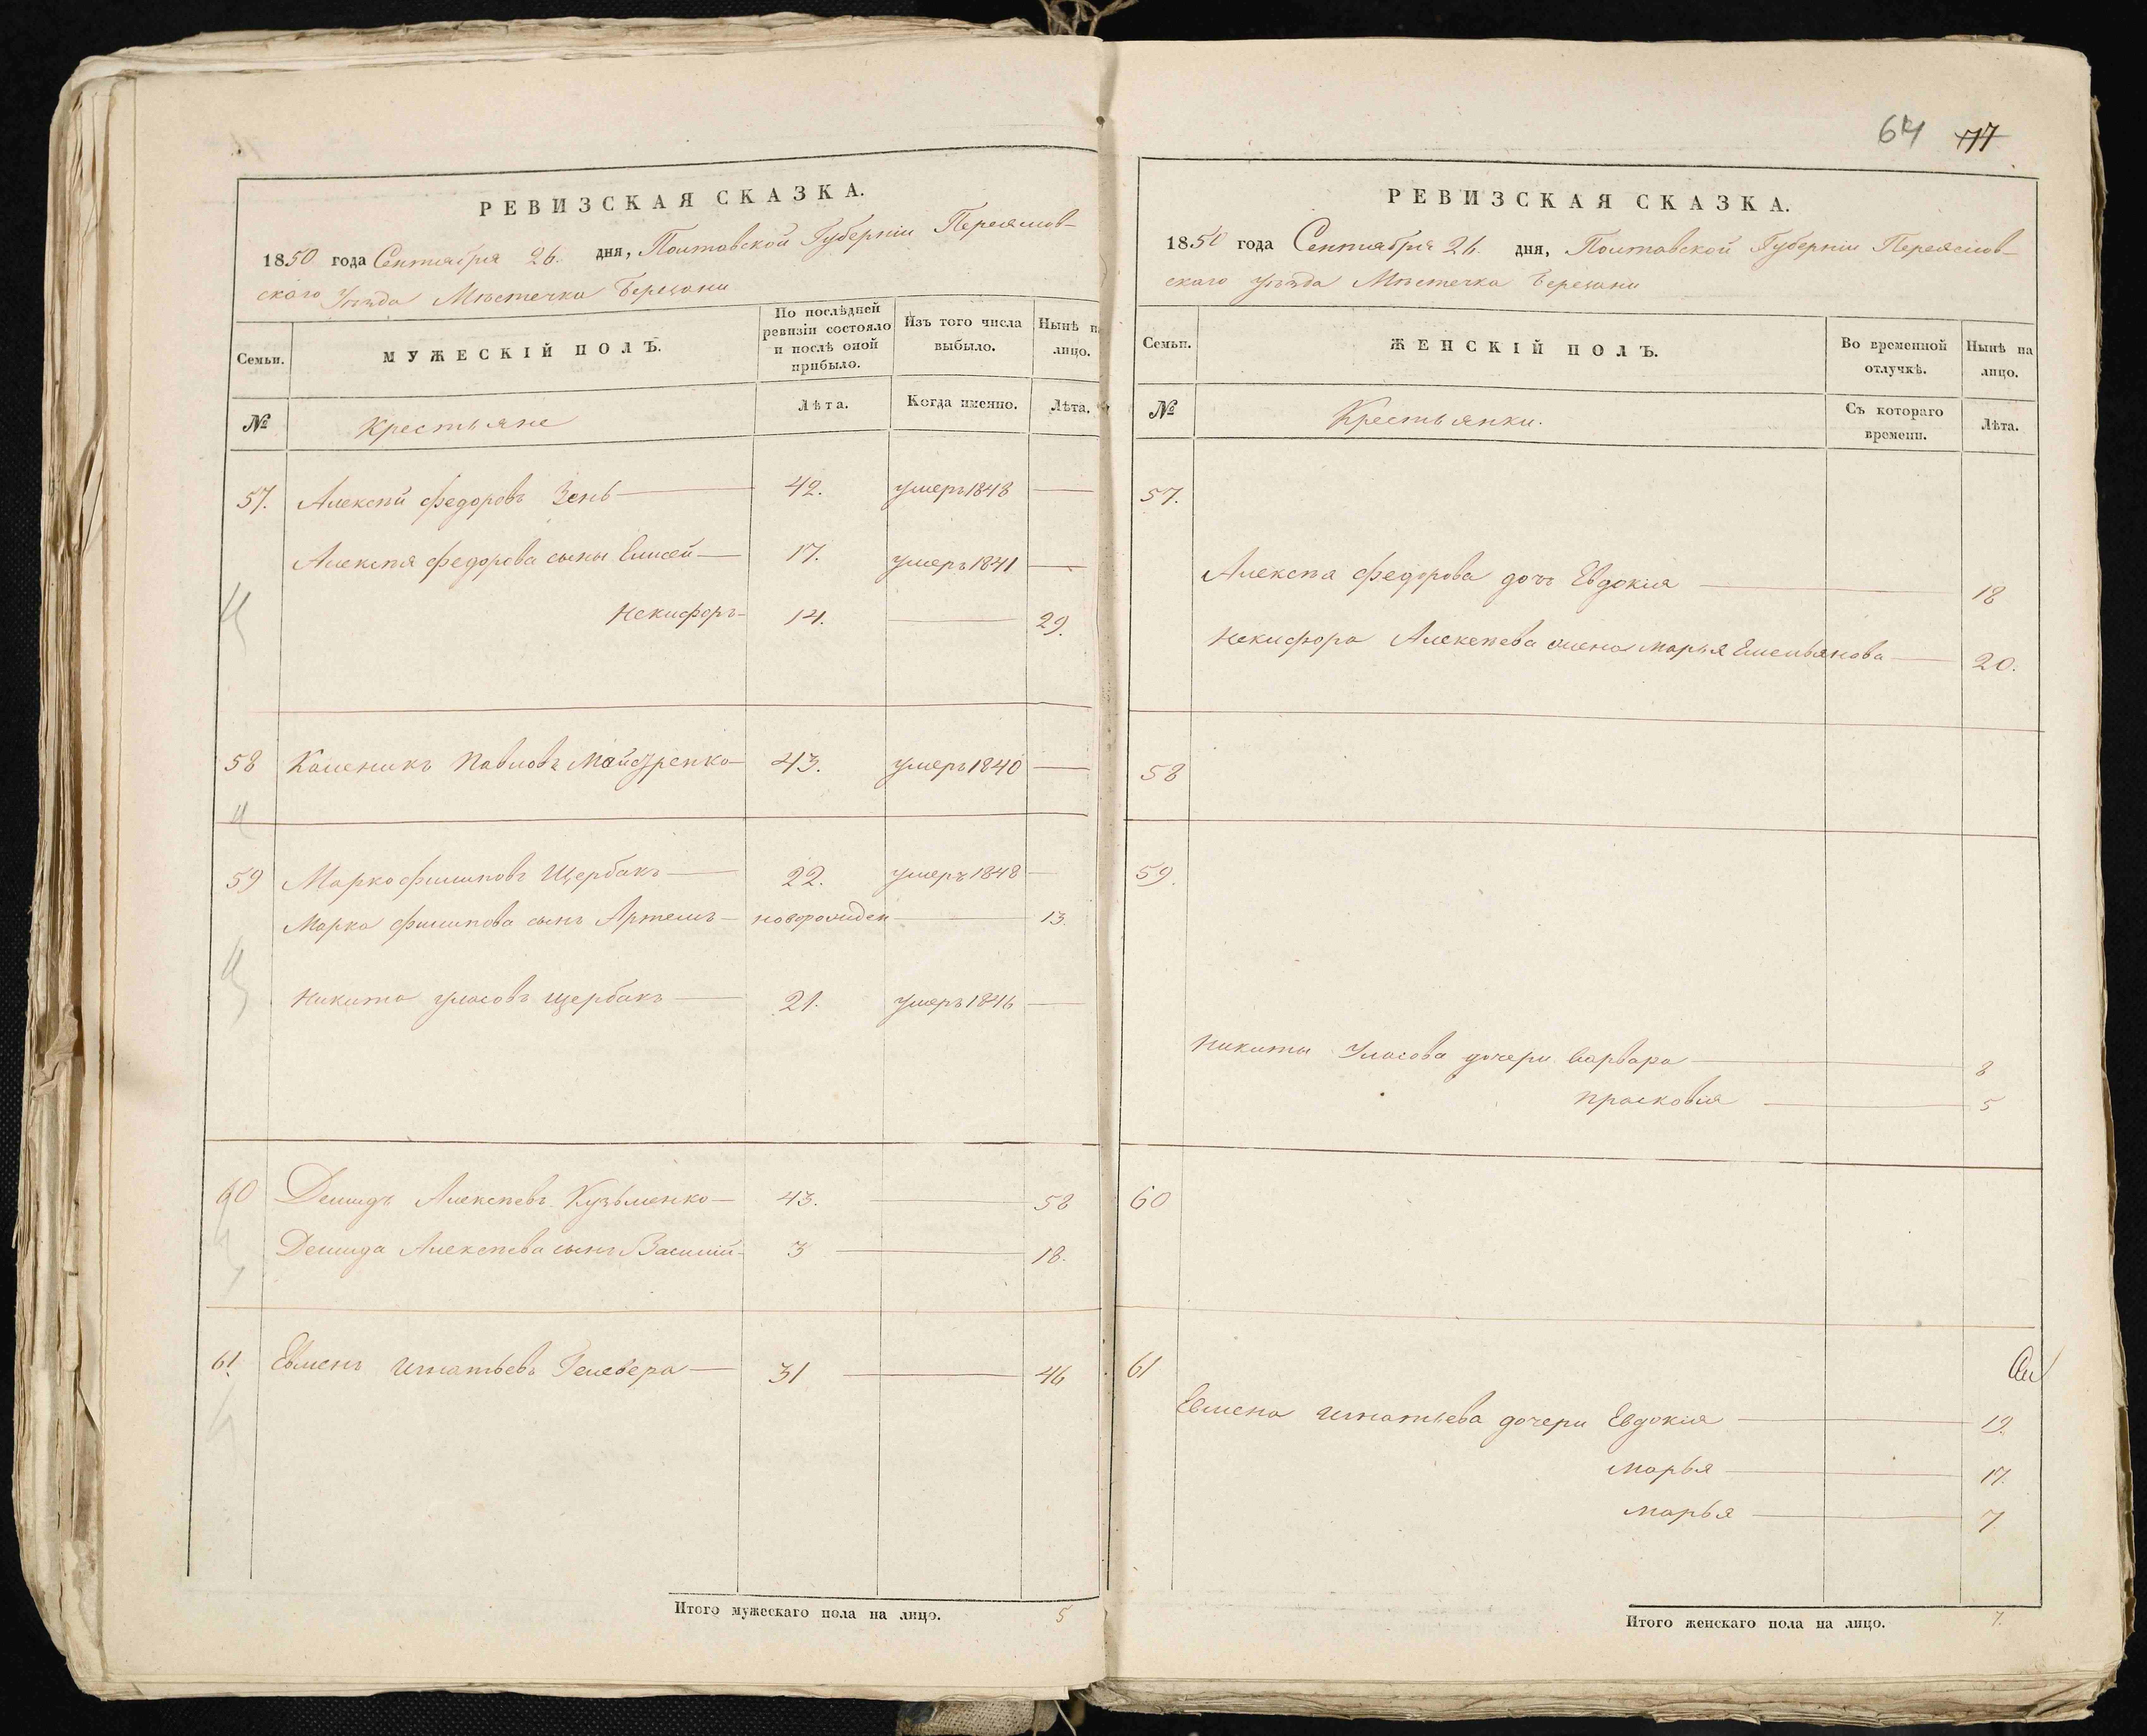 РЕВИЗСКАЯ СКАЗКА.
1850 года Сентября 26. дня, Полтавской Губерніи Переяслов-
скаго Уѣзда Мѣстечка Березани
Семьи.
МУЖЕСКІЙ ПОЛЪ.
По послѣдней ревизіи состояло и послѣ оной прибыло.
Изъ того числа выбыло.
Нынѣ н лицо.
№
Крестьяне
Лѣта.
Когда имянно.
Лѣта.
57. Алексѣй Федоровъ Зень 42. умеръ 1848
Алексѣя Федорова сыны Елисей 17. умеръ 1841
Некифоръ 14. 29.
58 Каленикъ Павловъ Майдренко 43. умеръ 1840
59 Марко Филиповъ Щербакъ 22. умеръ 1848
Марка Филипова сынъ Артемъ новорожден 13.
Никита Уласовъ Щербакъ 21. умеръ 1846
60 Демидъ Алексѣевъ Кузьменко 43. 58
Демида Алексѣева сынъ Василій 3 18.
61. Евменъ Игнатьевъ Гелевера 31 46
Итого мужескаго пола на лицо. 5
64 77
РЕВИЗСКАЯ СКАЗКА.
1850 года Сентября 26. дня, Полтавской Губерніи Переяслов-
скаго Уѣзда Мѣстечка Березани
Семьи.
ЖЕНСКІЙ ПОЛЪ.
Во временной отлучкѣ.
Нынѣ на лицо.
№
Крестьянки.
Съ котораго времени.
Лѣта.
57.
Алексѣя Федорова дочь Евдокія 18
Некифора Алексѣева жена Марья Емельянова 20.
58
59.
Никиты Уласова дочери Варвара 8
Прасковія 5
60
61
Евмена Игнатьева дочери Евдокія 19.
Марья 17.
Марья 7
Итого женскаго пола на лицо. 7.